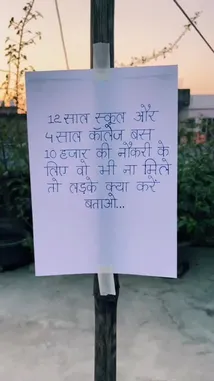 12 साल स्कूल और
4 साल कॉलेज बस
10 हजार की नौकरी के
लिए वो भी ना मिले
तो लड़के क्या करें
बताओ...